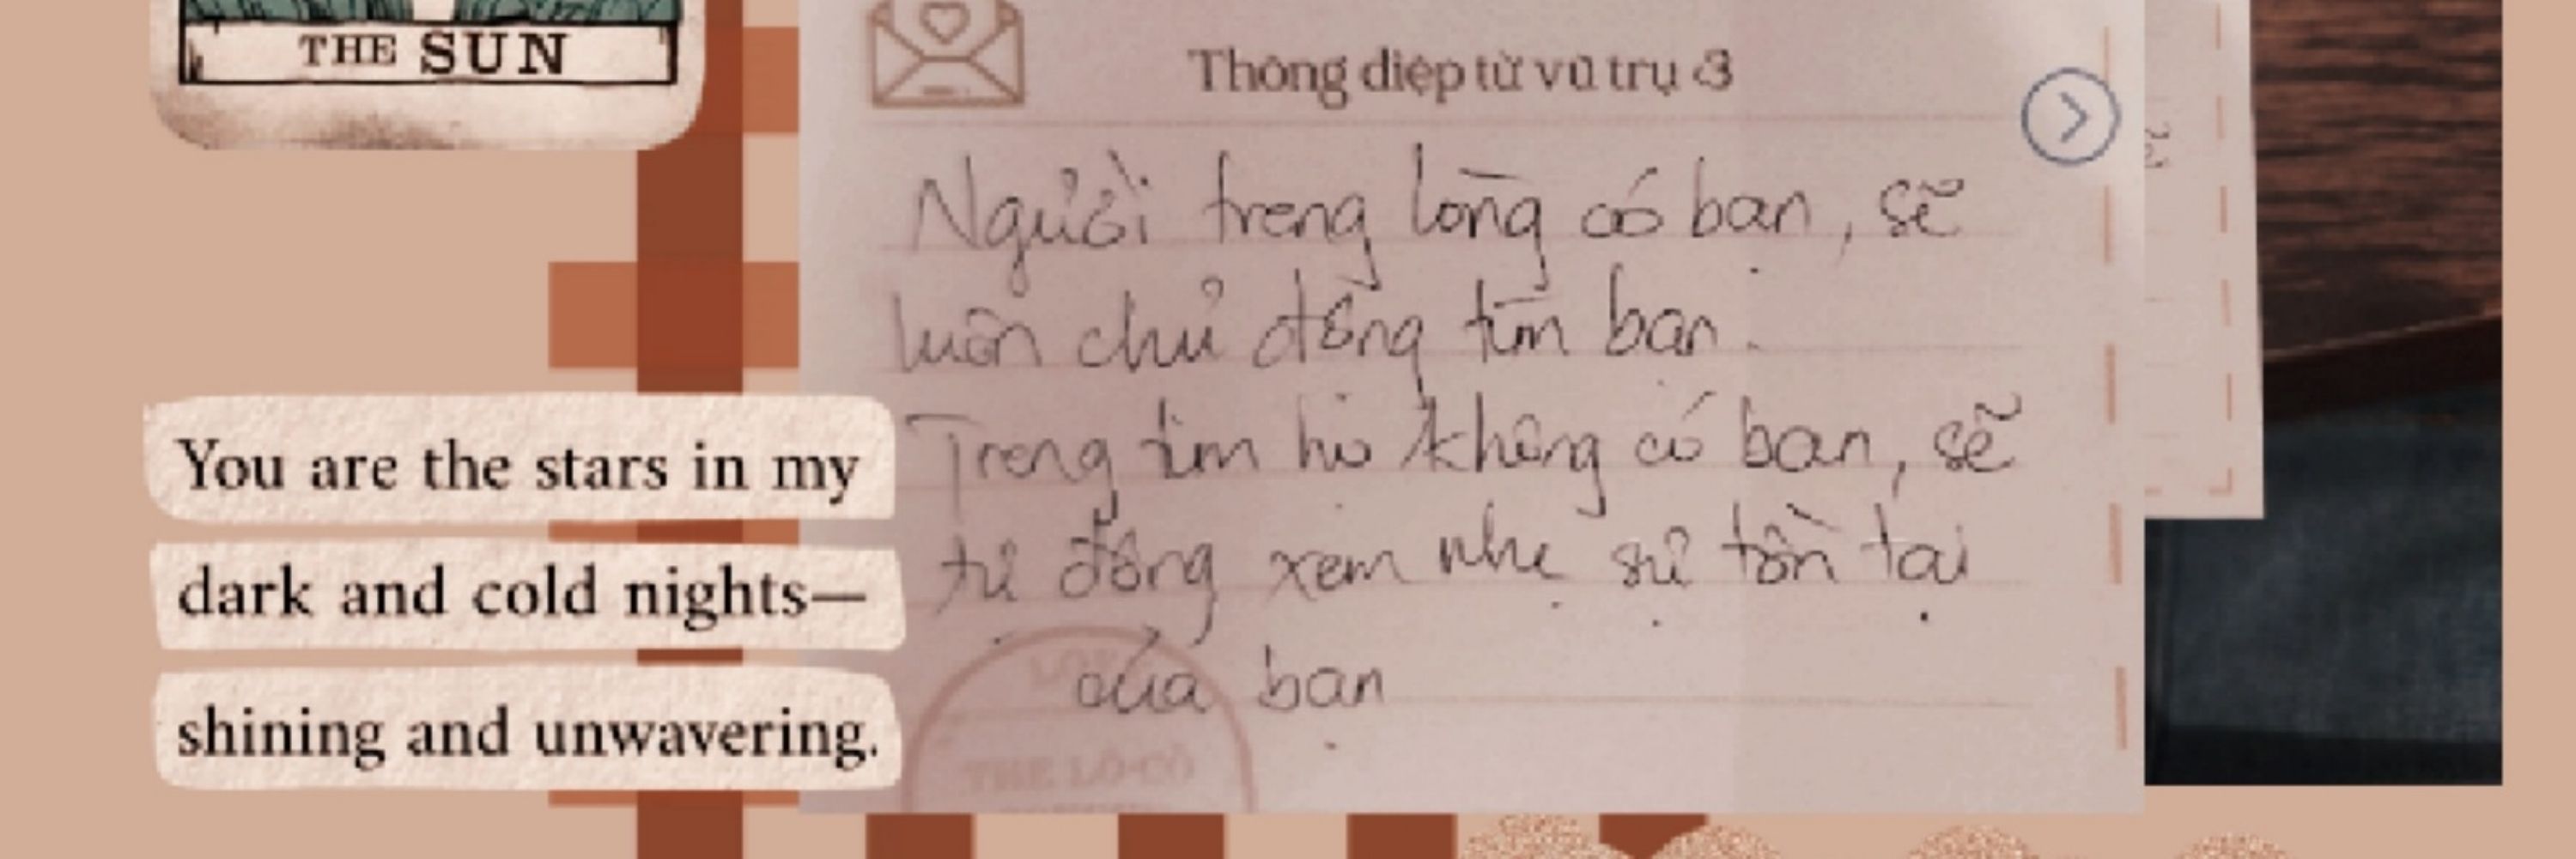 THE SUN
Thông điệp từ vũ trụ <3
Người trong lòng có bạn, sẽ
luôn chủ động tìm bạn.
Trong tim họ không có bạn, sẽ
tự động xem nhẹ sự tồn tại
của bạn
You are the stars in my
dark and cold nights—
shining and unwavering.
THE LÔ-CÔ